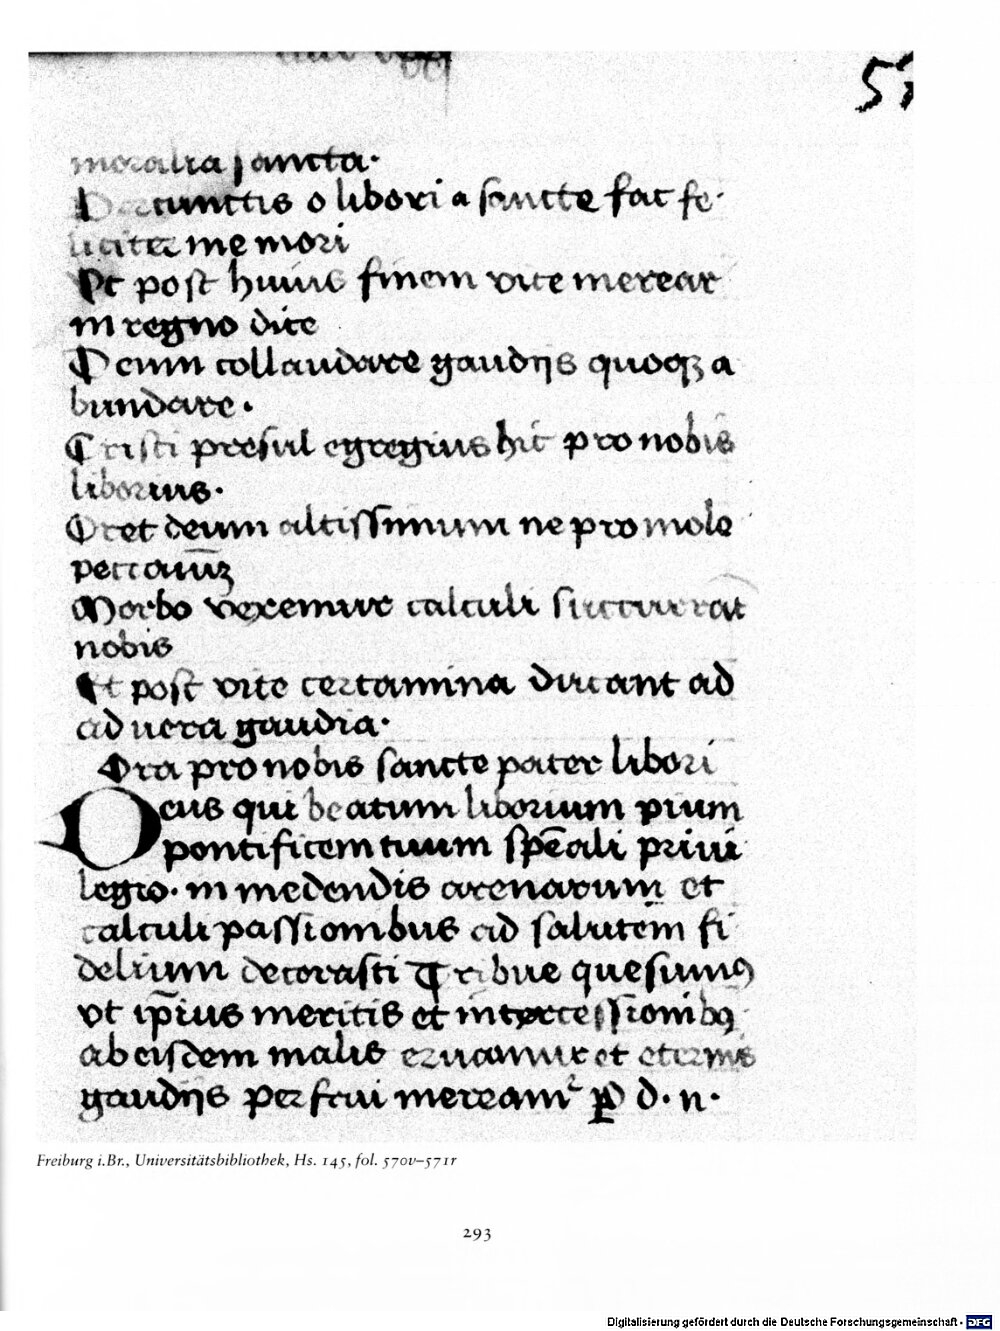 57
moralia sancta·
Percunctis o libori a sancte fac fe·
liciter me mori
Vt post huius finem vite merear
in regno dite
Deum collaudare gaudijs quoqꝫ a
bundare·
Cristi presul egregius hic pro nobis
liborius·
Oret deum altissimum ne pro mole
peccaminū
Morbo vexemur calculi succurrat
nobis
Et post vite certamina ducant ad
ad uera gaudia·
Ora pro nobis sancte pater libori
Deus qui beatum liborium pium
pontificem tuum spēali priui
legio· in medendis arenarum et
calculi passionibus ad salutem fi
delium decorasti Tribue quesumꝰ
vt ip̄ius meritis et intercessionibꝰ
ab eisdem malis eruamur et eternis
gaudijs perfrui meream᷑ P d· n·
Freiburg i.Br., Universitätsbibliothek, Hs. 145, fol. 570v–571r
293
Digitalisierung gefördert durch die Deutsche Forschungsgemeinschaft - DFG